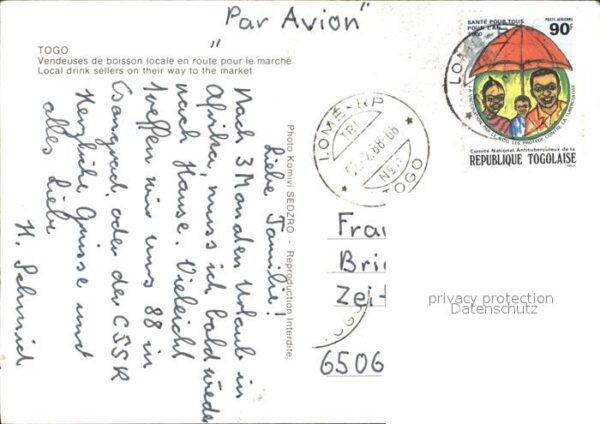 "Par Avion"
TOGO
Vendeuses de boisson locale en route pour le marché
Local drink sellers on their way to the market
Liebe Familie!
Nach 3 Monaten Urlaub in
Afrika, muss ich bald wieder
nach Hause. Vieleicht
treffen wir uns 88 in
oder der CSSR
Herzliche Grüsse und
alles Liebe
H. Schmid
Photo Komivi SEDZRO - Reproduction Interdite.
LOMÉ-RP
TRI
TOGO
SANTÉ POUR TOUS
POUR L'AN
2000
POSTE AERIENNE
90F
LOM
LA VACCINATION PAR LE BCG LES PROTEGE CONTRE LA TUBERCULOSE
Comité National Antituberculeux de la
REPUBLIQUE TOGOLAISE
Fra
Bri
Zei
TOGO
6506
privacy protection
Datenschutz